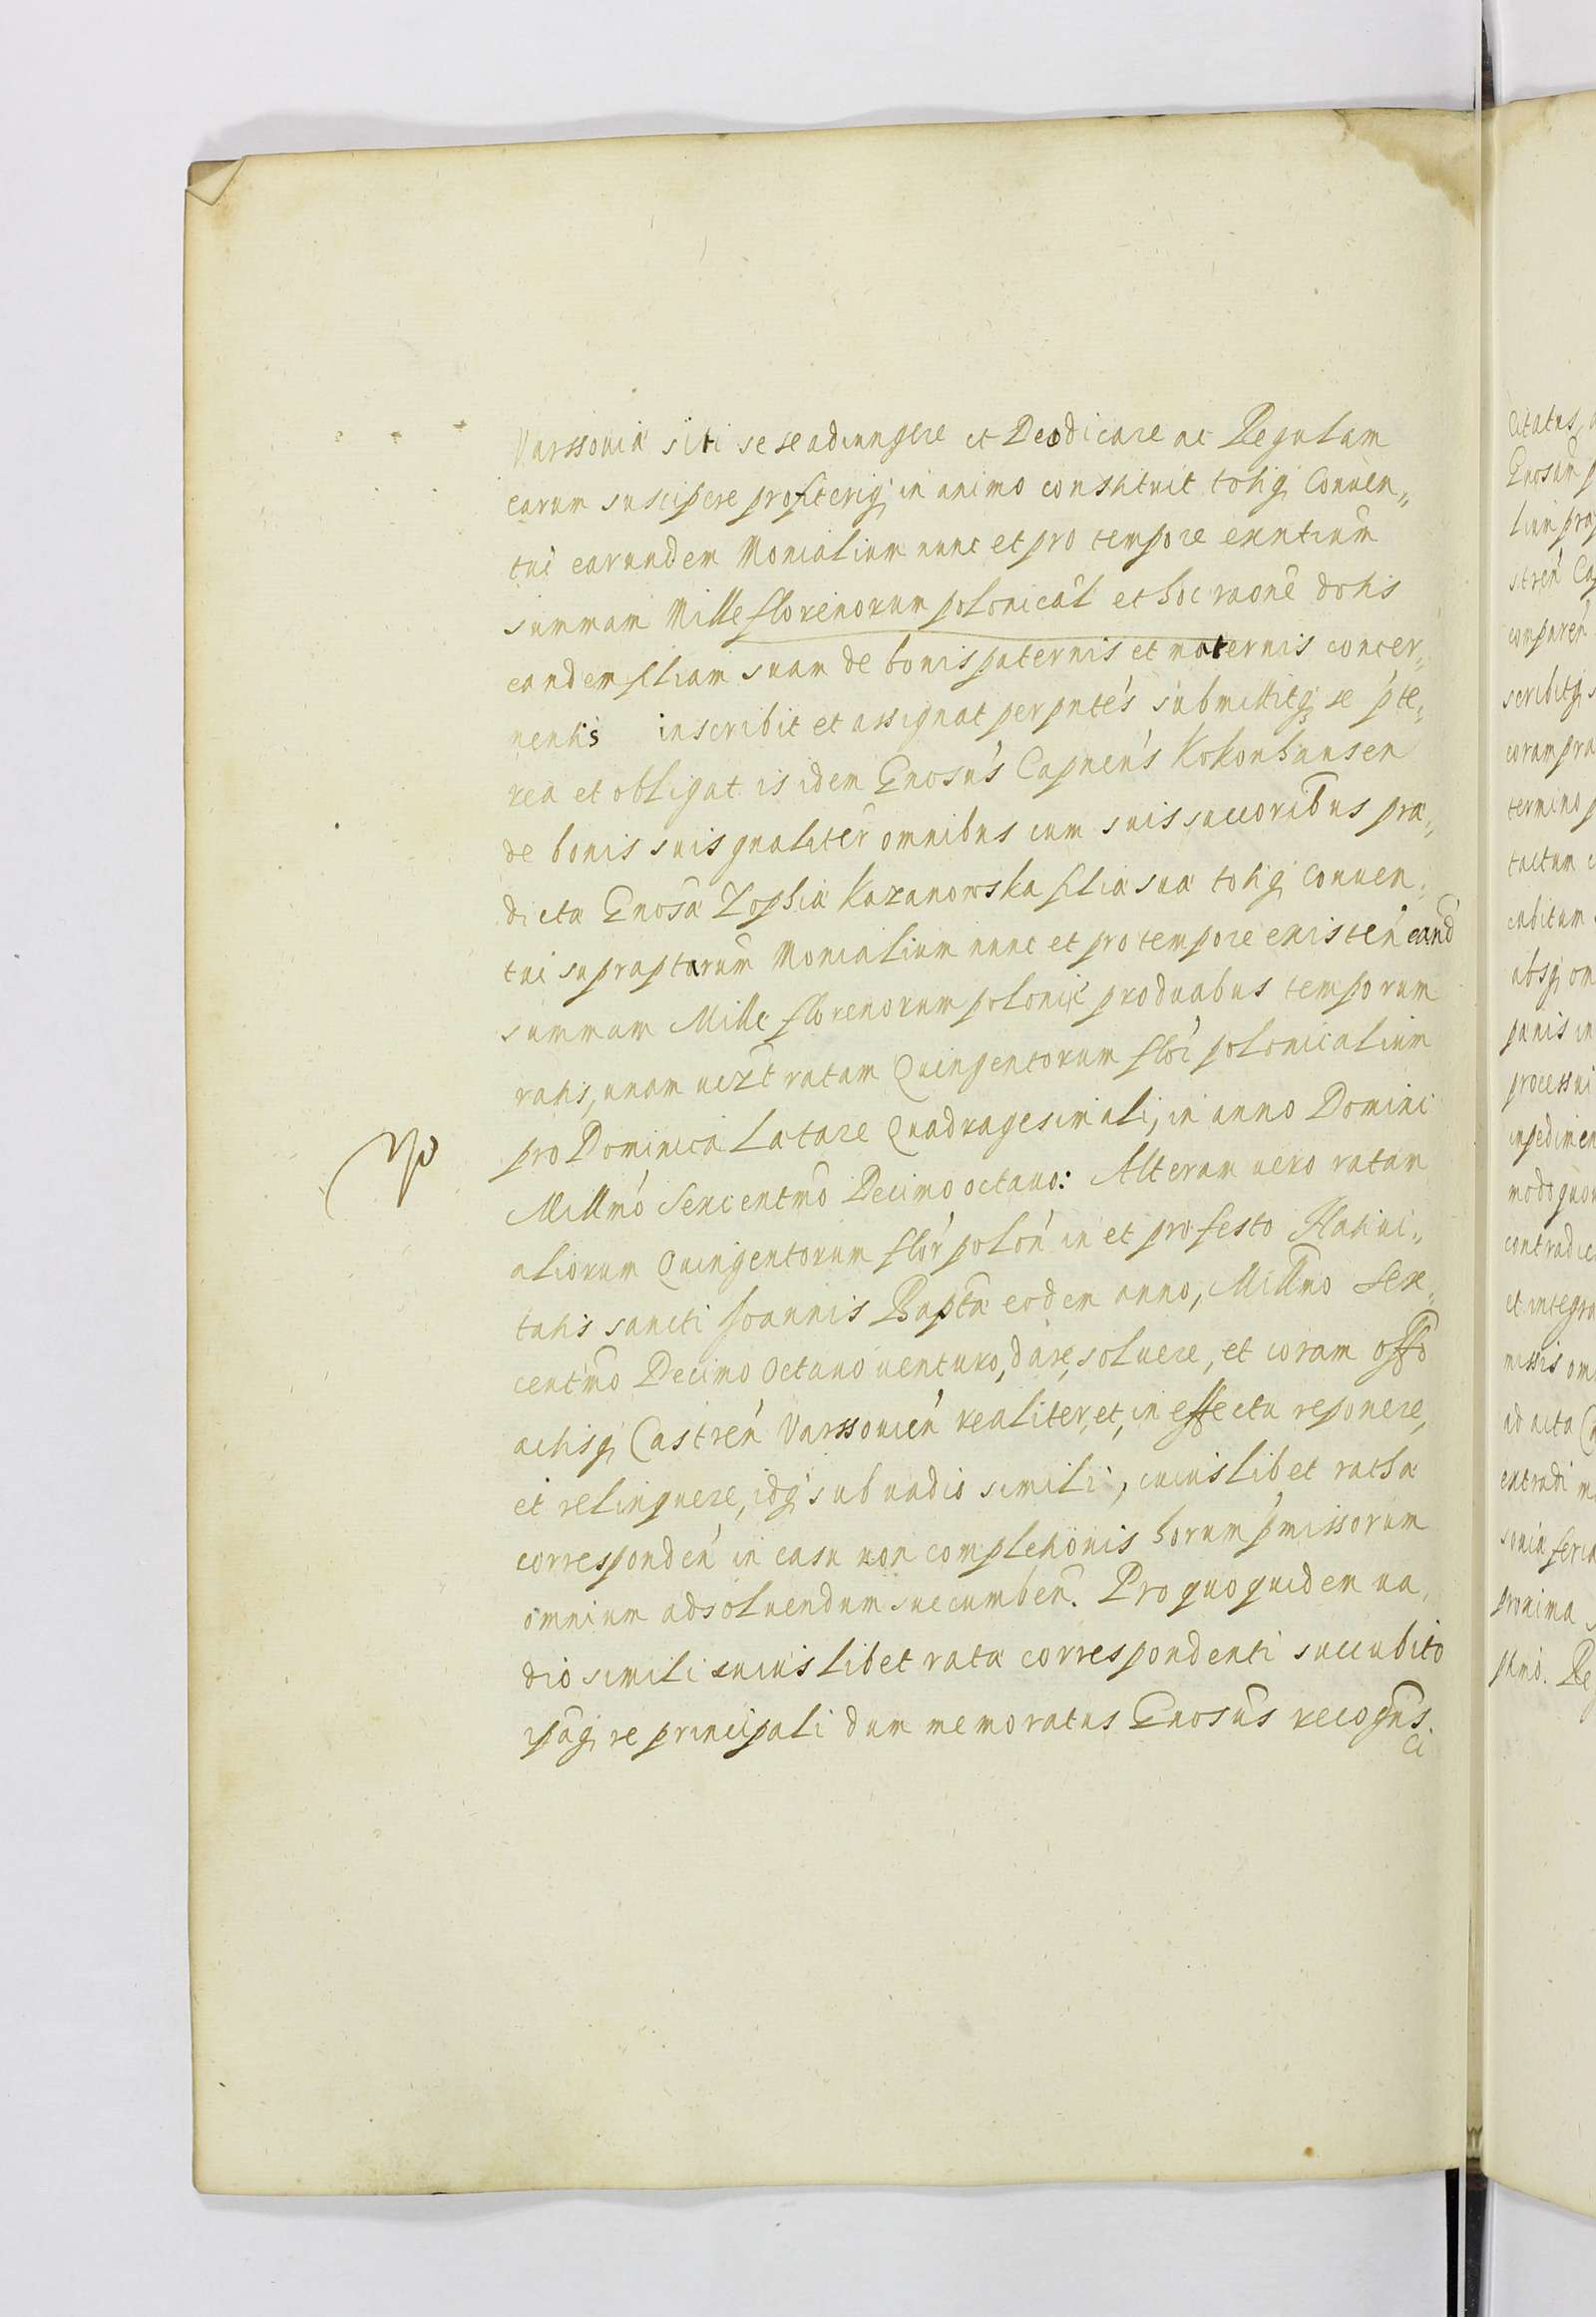 Varssouiæ siti se se adiungere et Deodicare ac Regulam
earum suscipere profiteriq; in animo constituit totiq; Conuen„
tui earundem Monialium nunc et pro tempore exntium
summam Mille florenorum polonical et hoc raone dotis
eandem filiam suam de bonis paternis et maternis concer„
nentis inscribit et assignat per pntes submittitq; se pte„
rea et obligat is idem Gnosus Capnens Kokonhausen
de bonis suis gnaliter omnibus cum suis succoribus præ„
dicta Gnosa Zophia Kazanowska filia sua totiq; Conuen„
tui supraptarum Monialium nunc et pro tempore existen eand
summam Mille florenorum polonic pro duabus temporum
ratis, unam uizt ratam Quingentorum flor polonicalium
pro Dominica Lætare Quadragesimali, in anno Domini
Millmo Sexcentmo Decimo octauo: Alteram uero ratam
aliorum Quingentorum flor polon in et pro festo Natiui„
tatis sancti Joannis Bapta eodem anno, Millmo Sex„
centmo Decimo Octauo uenturo, dare, soluere, et coram offo
actisq; Castren Varssouien realiter, et, in effectu reponere,
et relinquere, idq; sub uadio simili, cuiuslibet ratha
corresponden in casu non completionis horum pmissorum
omnium ad soluendum succumben. Pro quo quidem ua„
dio simili cuiuslibet rata correspondenti succubito
ipaq; re principali dum memoratus Gnosus recogns.
ci
citatus
Gnosum
lium
stren
comparen
scribitq;
coram
termino
tactum
cubitum
absq;
panis in
processui
impedimen
modo
contradic
et integra
missis
ad acta
extradi
souia feria
proxima
pmo.